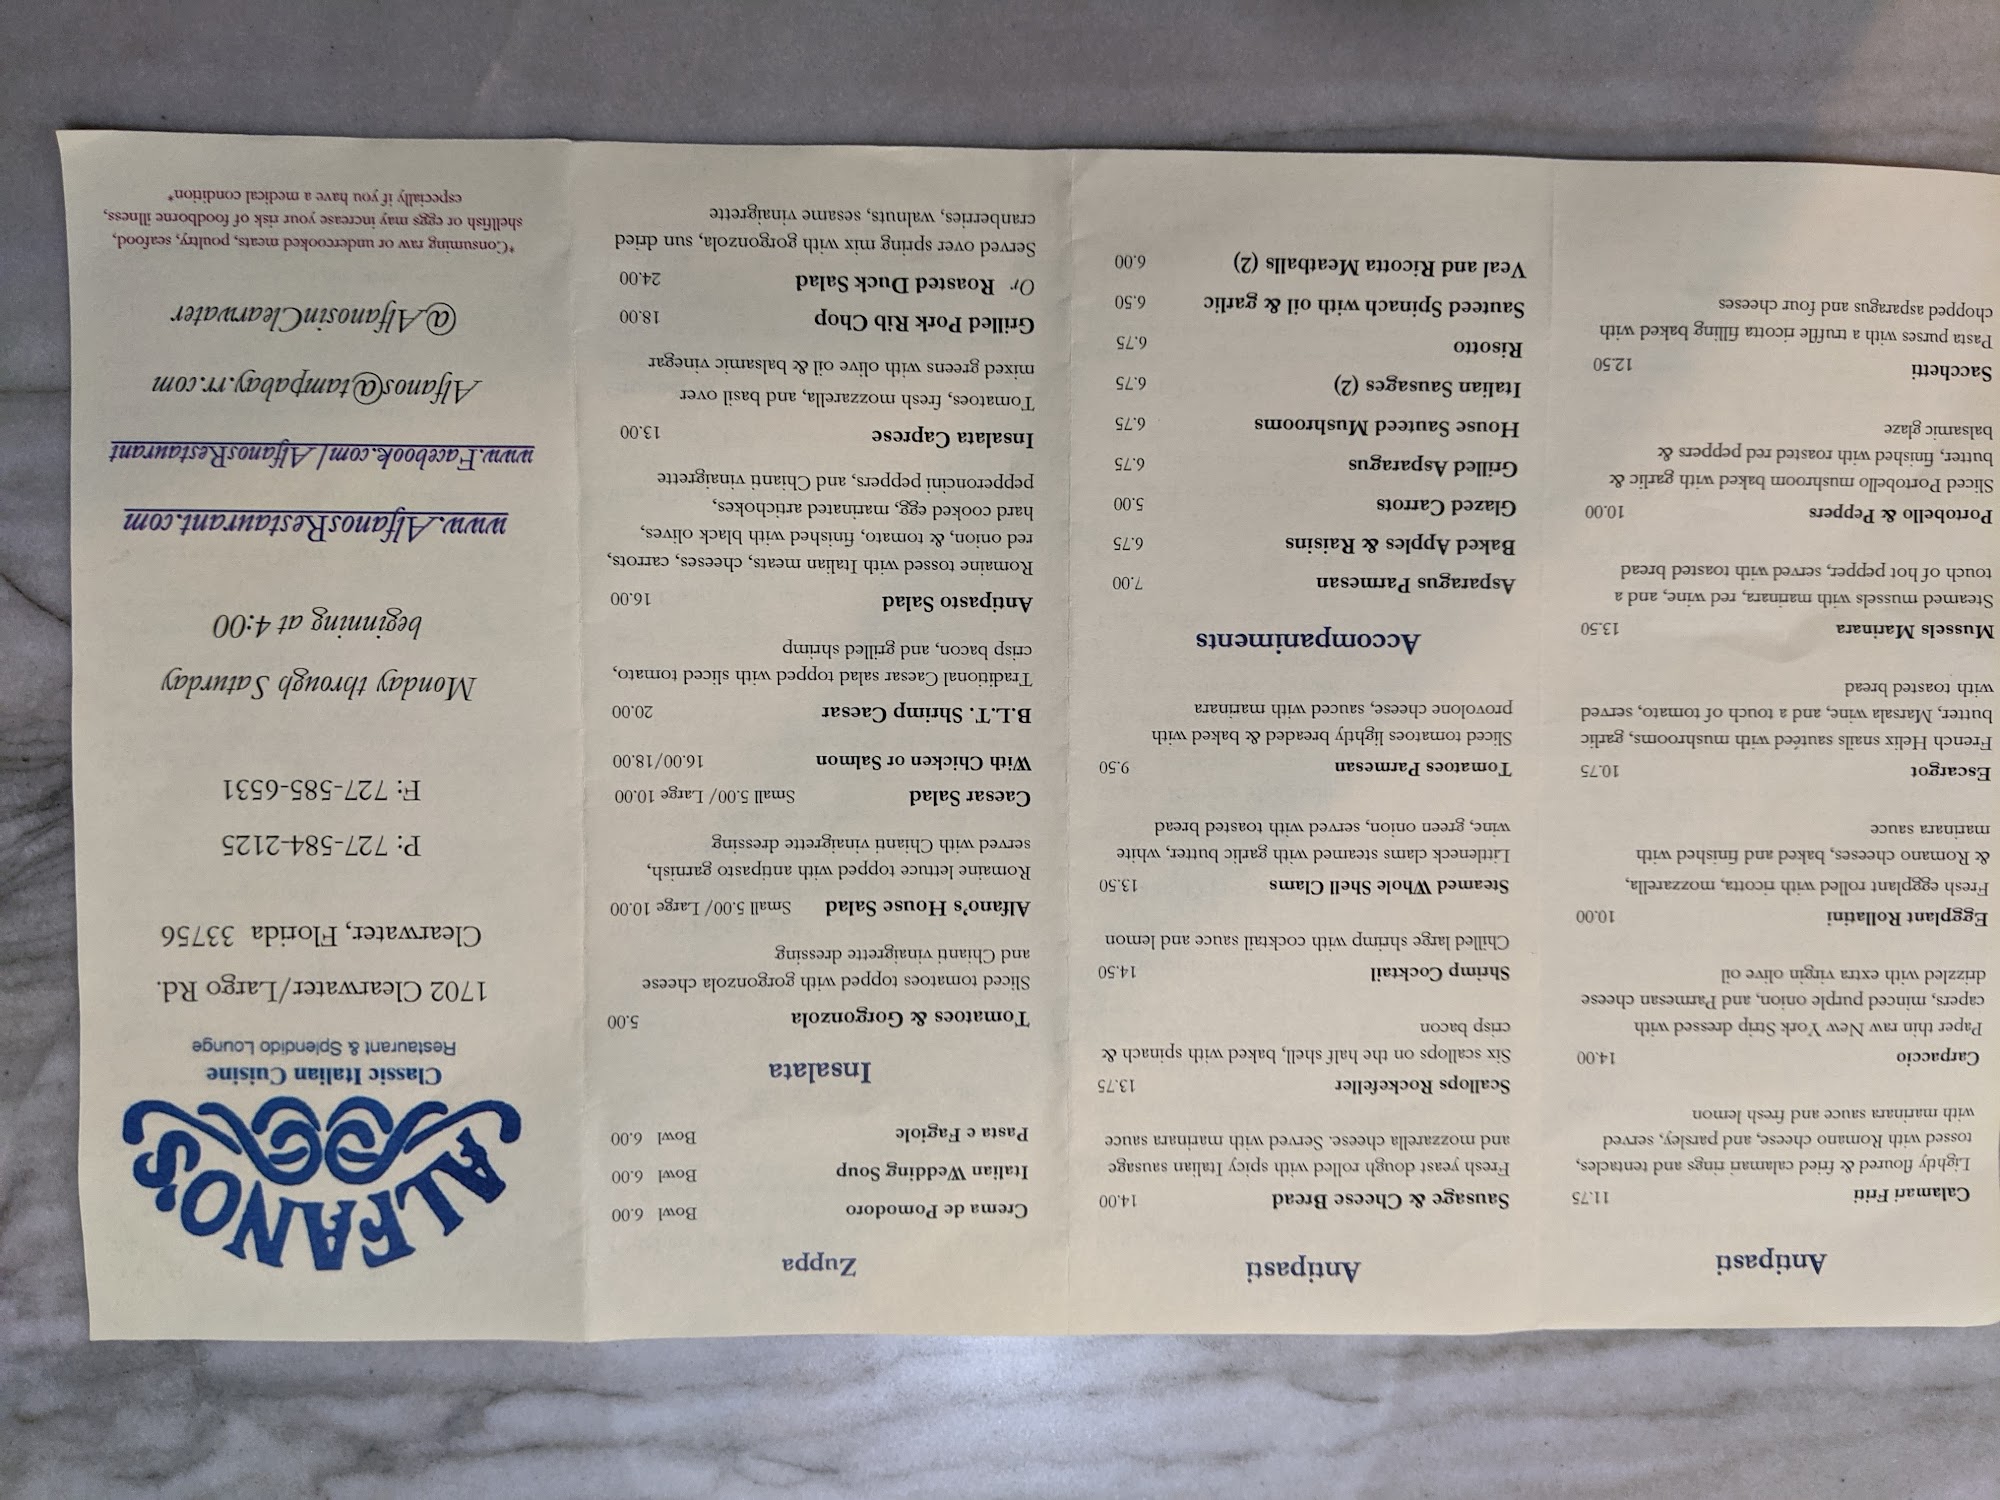 Antipasti
Calamari Friti 11.75
Lightly floured & fried calamari rings and tentacles,
tossed with Romano cheese, and parsley, served
with marinara sauce and fresh lemon
Carpaccio 14.00
Paper thin raw New York Strip dressed with
capers, minced purple onion, and Parmesan cheese
drizzled with extra virgin olive oil
Eggplant Rollatini 10.00
Fresh eggplant rolled with ricotta, mozzarella,
& Romano cheeses, baked and finished with
marinara sauce
Escargot 10.75
French Helix snails sautéed with mushrooms, garlic
butter, Marsala wine, and a touch of tomato, served
with toasted bread
Mussels Marinara 13.50
Steamed mussels with marinara, red wine, and a
touch of hot pepper, served with toasted bread
Portobello & Peppers 10.00
Sliced Portobello mushroom baked with garlic &
butter, finished with roasted red peppers &
balsamic glaze
Sacchetti 12.50
Pasta purses with a truffle ricotta filling baked with
chopped asparagus and four cheeses
Antipasti
Sausage & Cheese Bread 14.00
Fresh yeast dough rolled with spicy Italian sausage
and mozzarella cheese. Served with marinara sauce
Scallops Rockefeller 13.75
Six scallops on the half shell, baked with spinach &
crisp bacon
Shrimp Cocktail 14.50
Chilled large shrimp with cocktail sauce and lemon
Steamed Whole Shell Clams 13.50
Littleneck clams steamed with garlic butter, white
wine, green onion, served with toasted bread
Tomatoes Parmesan 9.50
Sliced tomatoes lightly breaded & baked with
provolone cheese, sauced with marinara
Accompaniments
Asparagus Parmesan 7.00
Baked Apples & Raisins 6.75
Glazed Carrots 5.00
Grilled Asparagus 6.75
House Sauteed Mushrooms 6.75
Italian Sausages (2) 6.75
Risotto 6.75
Sauteed Spinach with oil & garlic 6.50
Veal and Ricotta Meatballs (2) 6.00
Zuppa
Crema de Pomodoro Bowl 6.00
Italian Wedding Soup Bowl 6.00
Pasta e Fagiole Bowl 6.00
Insalata
Tomatoes & Gorgonzola 5.00
Sliced tomatoes topped with gorgonzola cheese
and Chianti vinaigrette dressing
Alfano's House Salad Small 5.00/ Large 10.00
Romaine lettuce topped with antipasto garnish,
served with Chianti vinaigrette dressing
Caesar Salad Small 5.00/ Large 10.00
With Chicken or Salmon 16.00/18.00
B.L.T. Shrimp Caesar 20.00
Traditional Caesar salad topped with sliced tomato,
crisp bacon, and grilled shrimp
Antipasto Salad 16.00
Romaine tossed with Italian meats, cheeses, carrots,
red onion, & tomato, finished with black olives,
hard cooked egg, marinated artichokes,
pepperoncini peppers, and Chianti vinaigrette
Insalata Caprese 13.00
Tomatoes, fresh mozzarella, and basil over
mixed greens with olive oil & balsamic vinegar
Grilled Pork Rib Chop 18.00
Or Roasted Duck Salad 24.00
Served over spring mix with gorgonzola, sun dried
cranberries, walnuts, sesame vinaigrette
ALFANO'S
Classic Italian Cuisine
Restaurant & Splendido Lounge
1702 Clearwater/Largo Rd.
Clearwater, Florida 33756
P: 727-584-2125
F: 727-585-6531
Monday through Saturday
beginning at 4:00
www.AlfanosRestaurant.com
www.Facebook.com/AlfanosRestaurant
Alfanos@tampabay.rr.com
@AlfanosinClearwater
*Consuming raw or undercooked meats, poultry, seafood,
shellfish or eggs may increase your risk of foodborne illness,
especially if you have a medical condition*